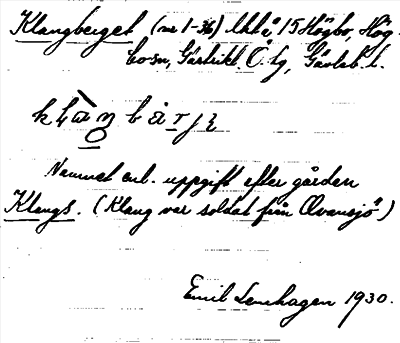 Klangberget (nr 1-36) Ukla 15 Högbo, Hög-
bo sn, Gästrikl. Ö. tg, Gävleb. l.
Namnet enl. uppgift efter gården
Klangs. (Klang var soldat från Ovansjö)
Emil Lenhagen 1930.